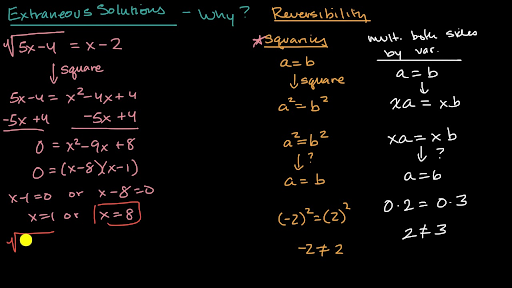 Extraneous Solutions - Why? Reversibility
√5x-4 = x-2
↓ square
5x-4 = x²-4x+4
-5x+4 -5x+4
0 = x²-9x+8
0 = (x-8)(x-1)
x-1=0 or x-8=0
x=1 or x=8
√
*Squaring
a=b
↓ square
a²=b²
a²=b²
↓?
a=b
(-2)²=(2)²
-2≠2
mult. both sides
by var.
a=b
↓
xa=xb
xa=xb
↓?
a=b
0·2=0·3
2≠3